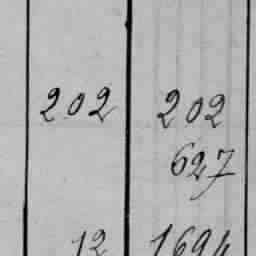 202 202
627
12 1694